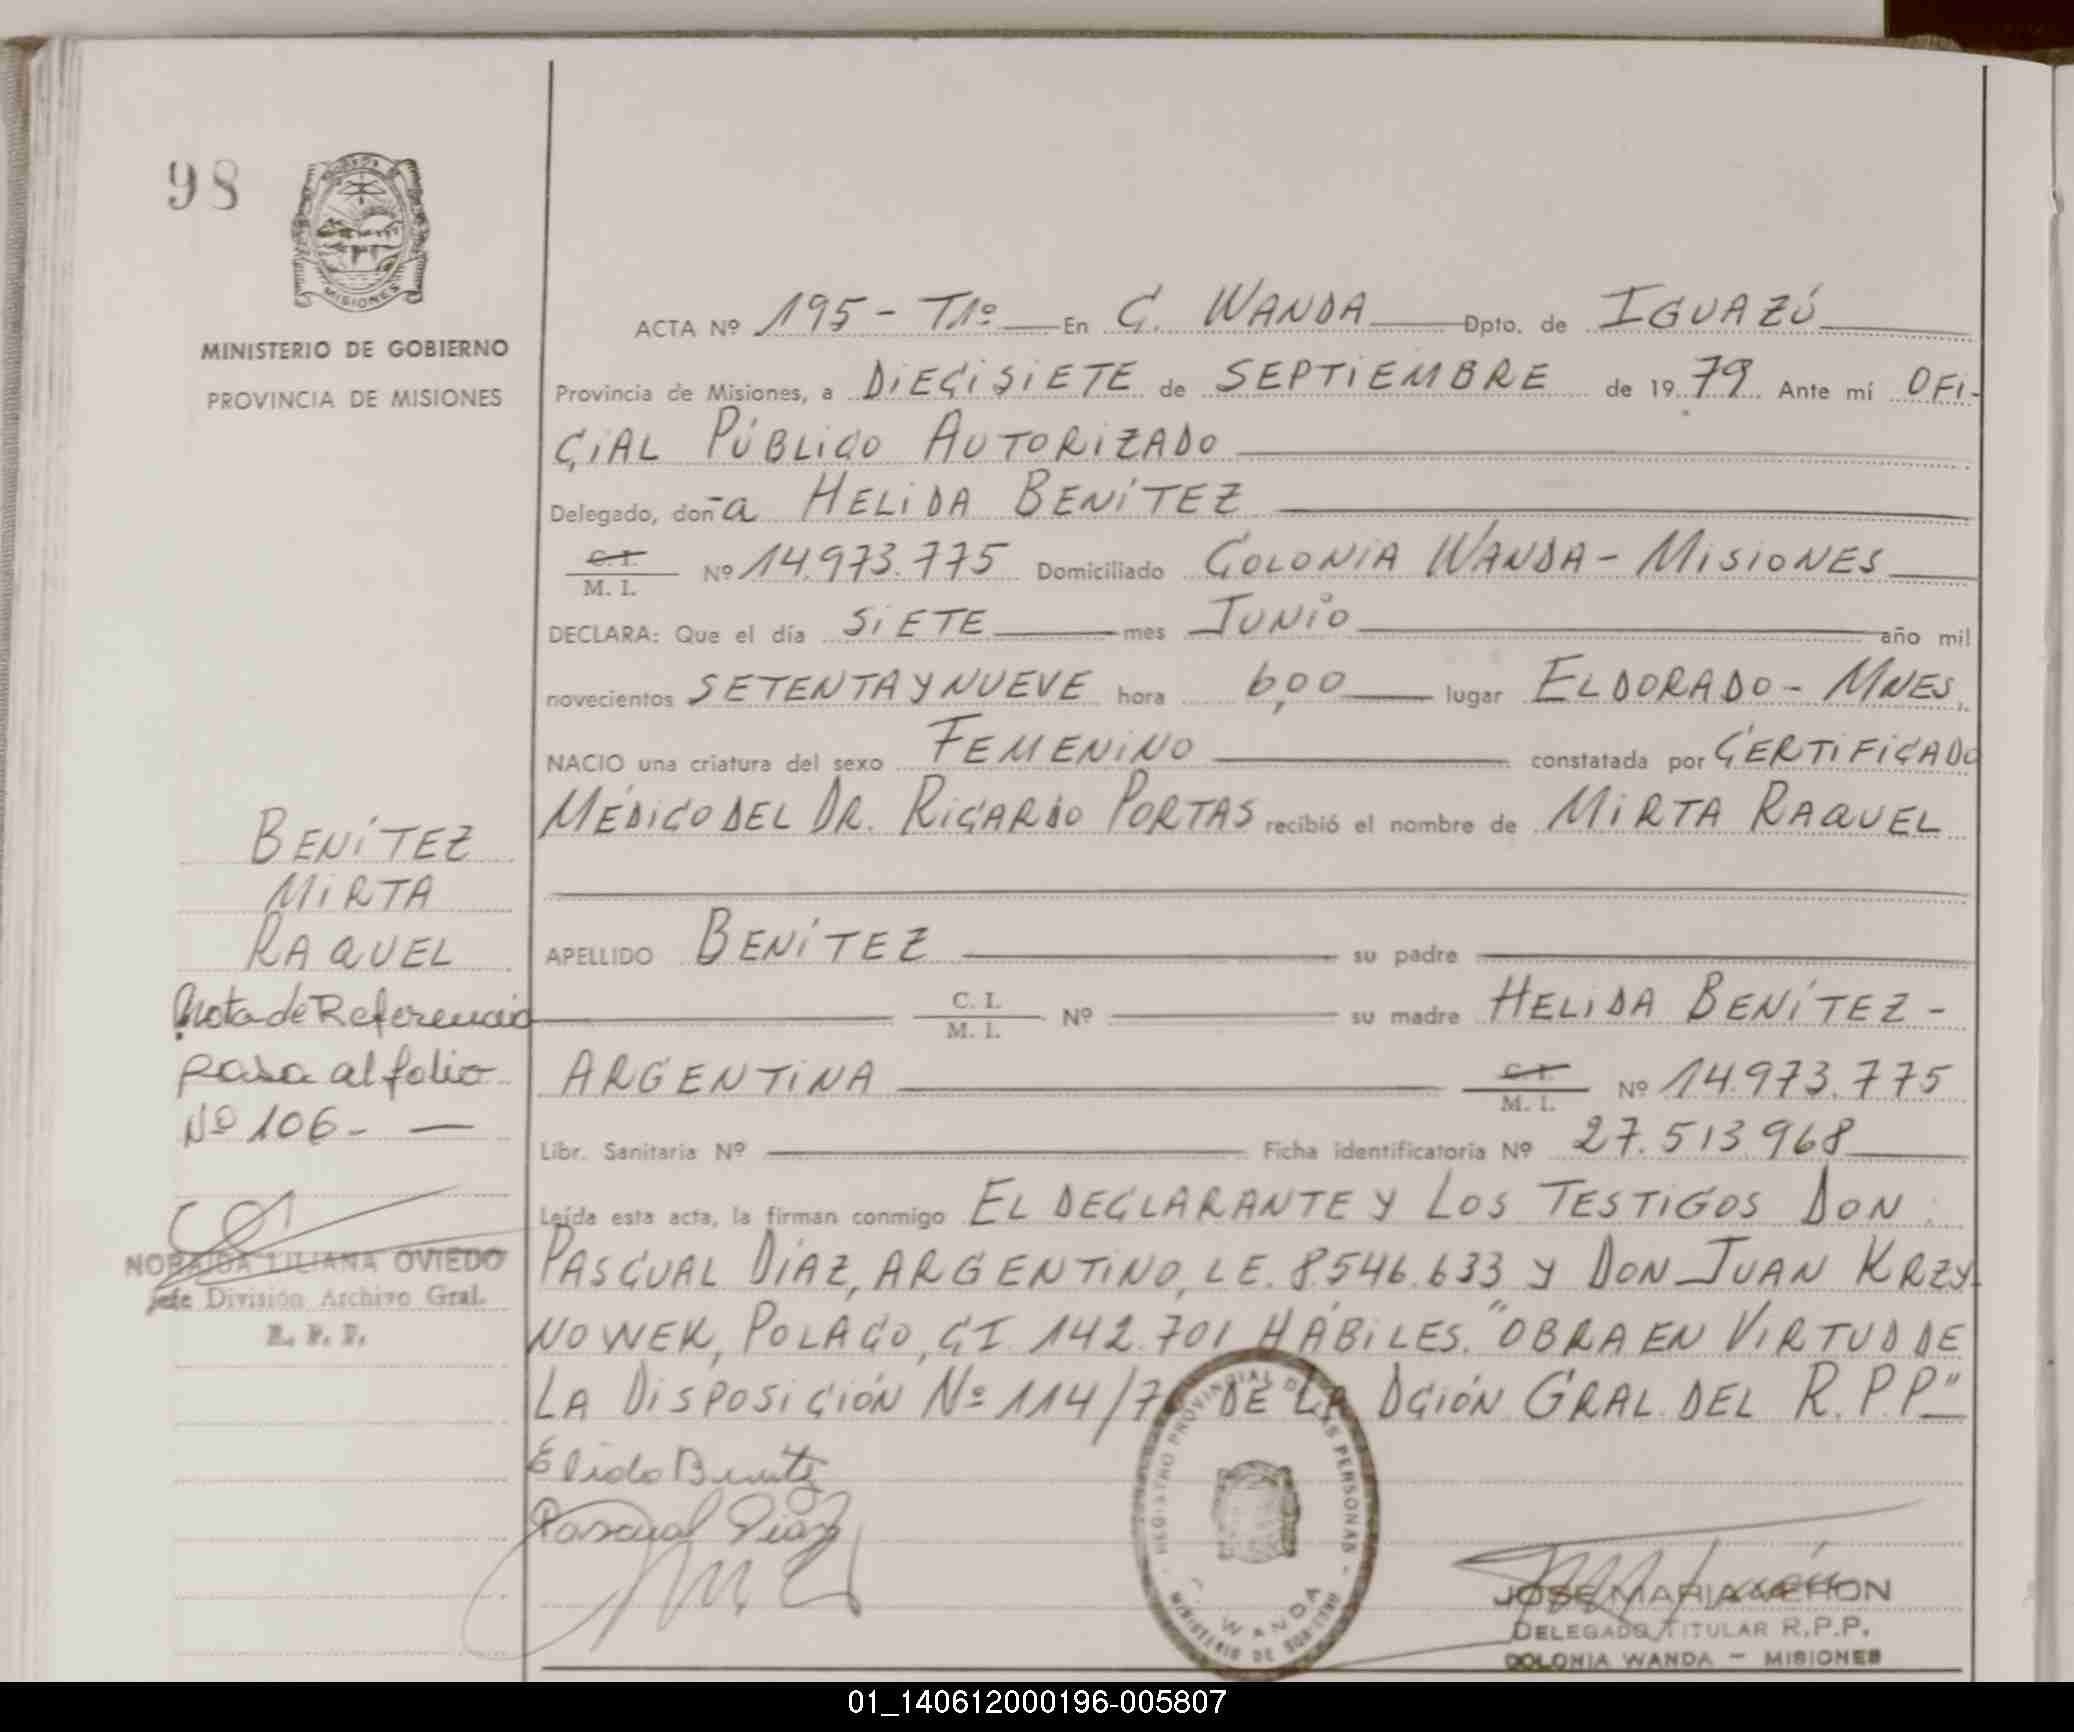 98
MISIONES
MINISTERIO DE GOBIERNO
PROVINCIA DE MISIONES
ACTA Nº 195 - T1º En C. WANDA Dpto. de IGUAZÚ
Provincia de Misiones, a DIECISIETE de SEPTIEMBRE de 19 79 Ante mí OFI-
CIAL PÚBLICO AUTORIZADO
Delegado, doña HELIDA BENÍTEZ
C. I.
M. I. Nº 14.973.775 Domiciliado COLONIA WANDA - MISIONES
DECLARA: Que el día SIETE mes JUNIO año mil
novecientos SETENTA Y NUEVE hora 6,00 lugar ELDORADO - MNES.
NACIO una criatura del sexo FEMENINO constatada por CERTIFICADO
MÉDICO DEL DR. RICARDO PORTAS recibió el nombre de MIRTA RAQUEL
APELLIDO BENÍTEZ su padre
C. I.
M. I. Nº su madre HELIDA BENÍTEZ -
ARGENTINA C. I.
M. I. Nº 14.973.775
Libr. Sanitaria Nº Ficha identificatoria Nº 27.513.968
Leída esta acta, la firman conmigo EL DECLARANTE Y LOS TESTIGOS DON
PASCUAL DÍAZ, ARGENTINO, L E. 8546.633 Y DON JUAN KRZY-
NOWEK, POLACO, CI 142.701 HÁBILES. "OBRA EN VIRTUD DE
LA DISPOSICIÓN Nº 114/7 DE LA DCIÓN GRAL DEL R.P.P."
BENÍTEZ
MIRTA
RAQUEL
Nota de Referencia
pasa al folio
Nº 106 -
NORAIDA LILIANA OVIEDO
Jefe División Archivo Gral.
R. P. P.
Elida Benitez
Pascual Diaz
REGISTRO PROVINCIAL DE LAS PERSONAS
C. WANDA
MINISTERIO DE GOBIERNO
JOSE MARIA VERON
DELEGADO TITULAR R.P.P.
COLONIA WANDA - MISIONES
01_140612000196-005807